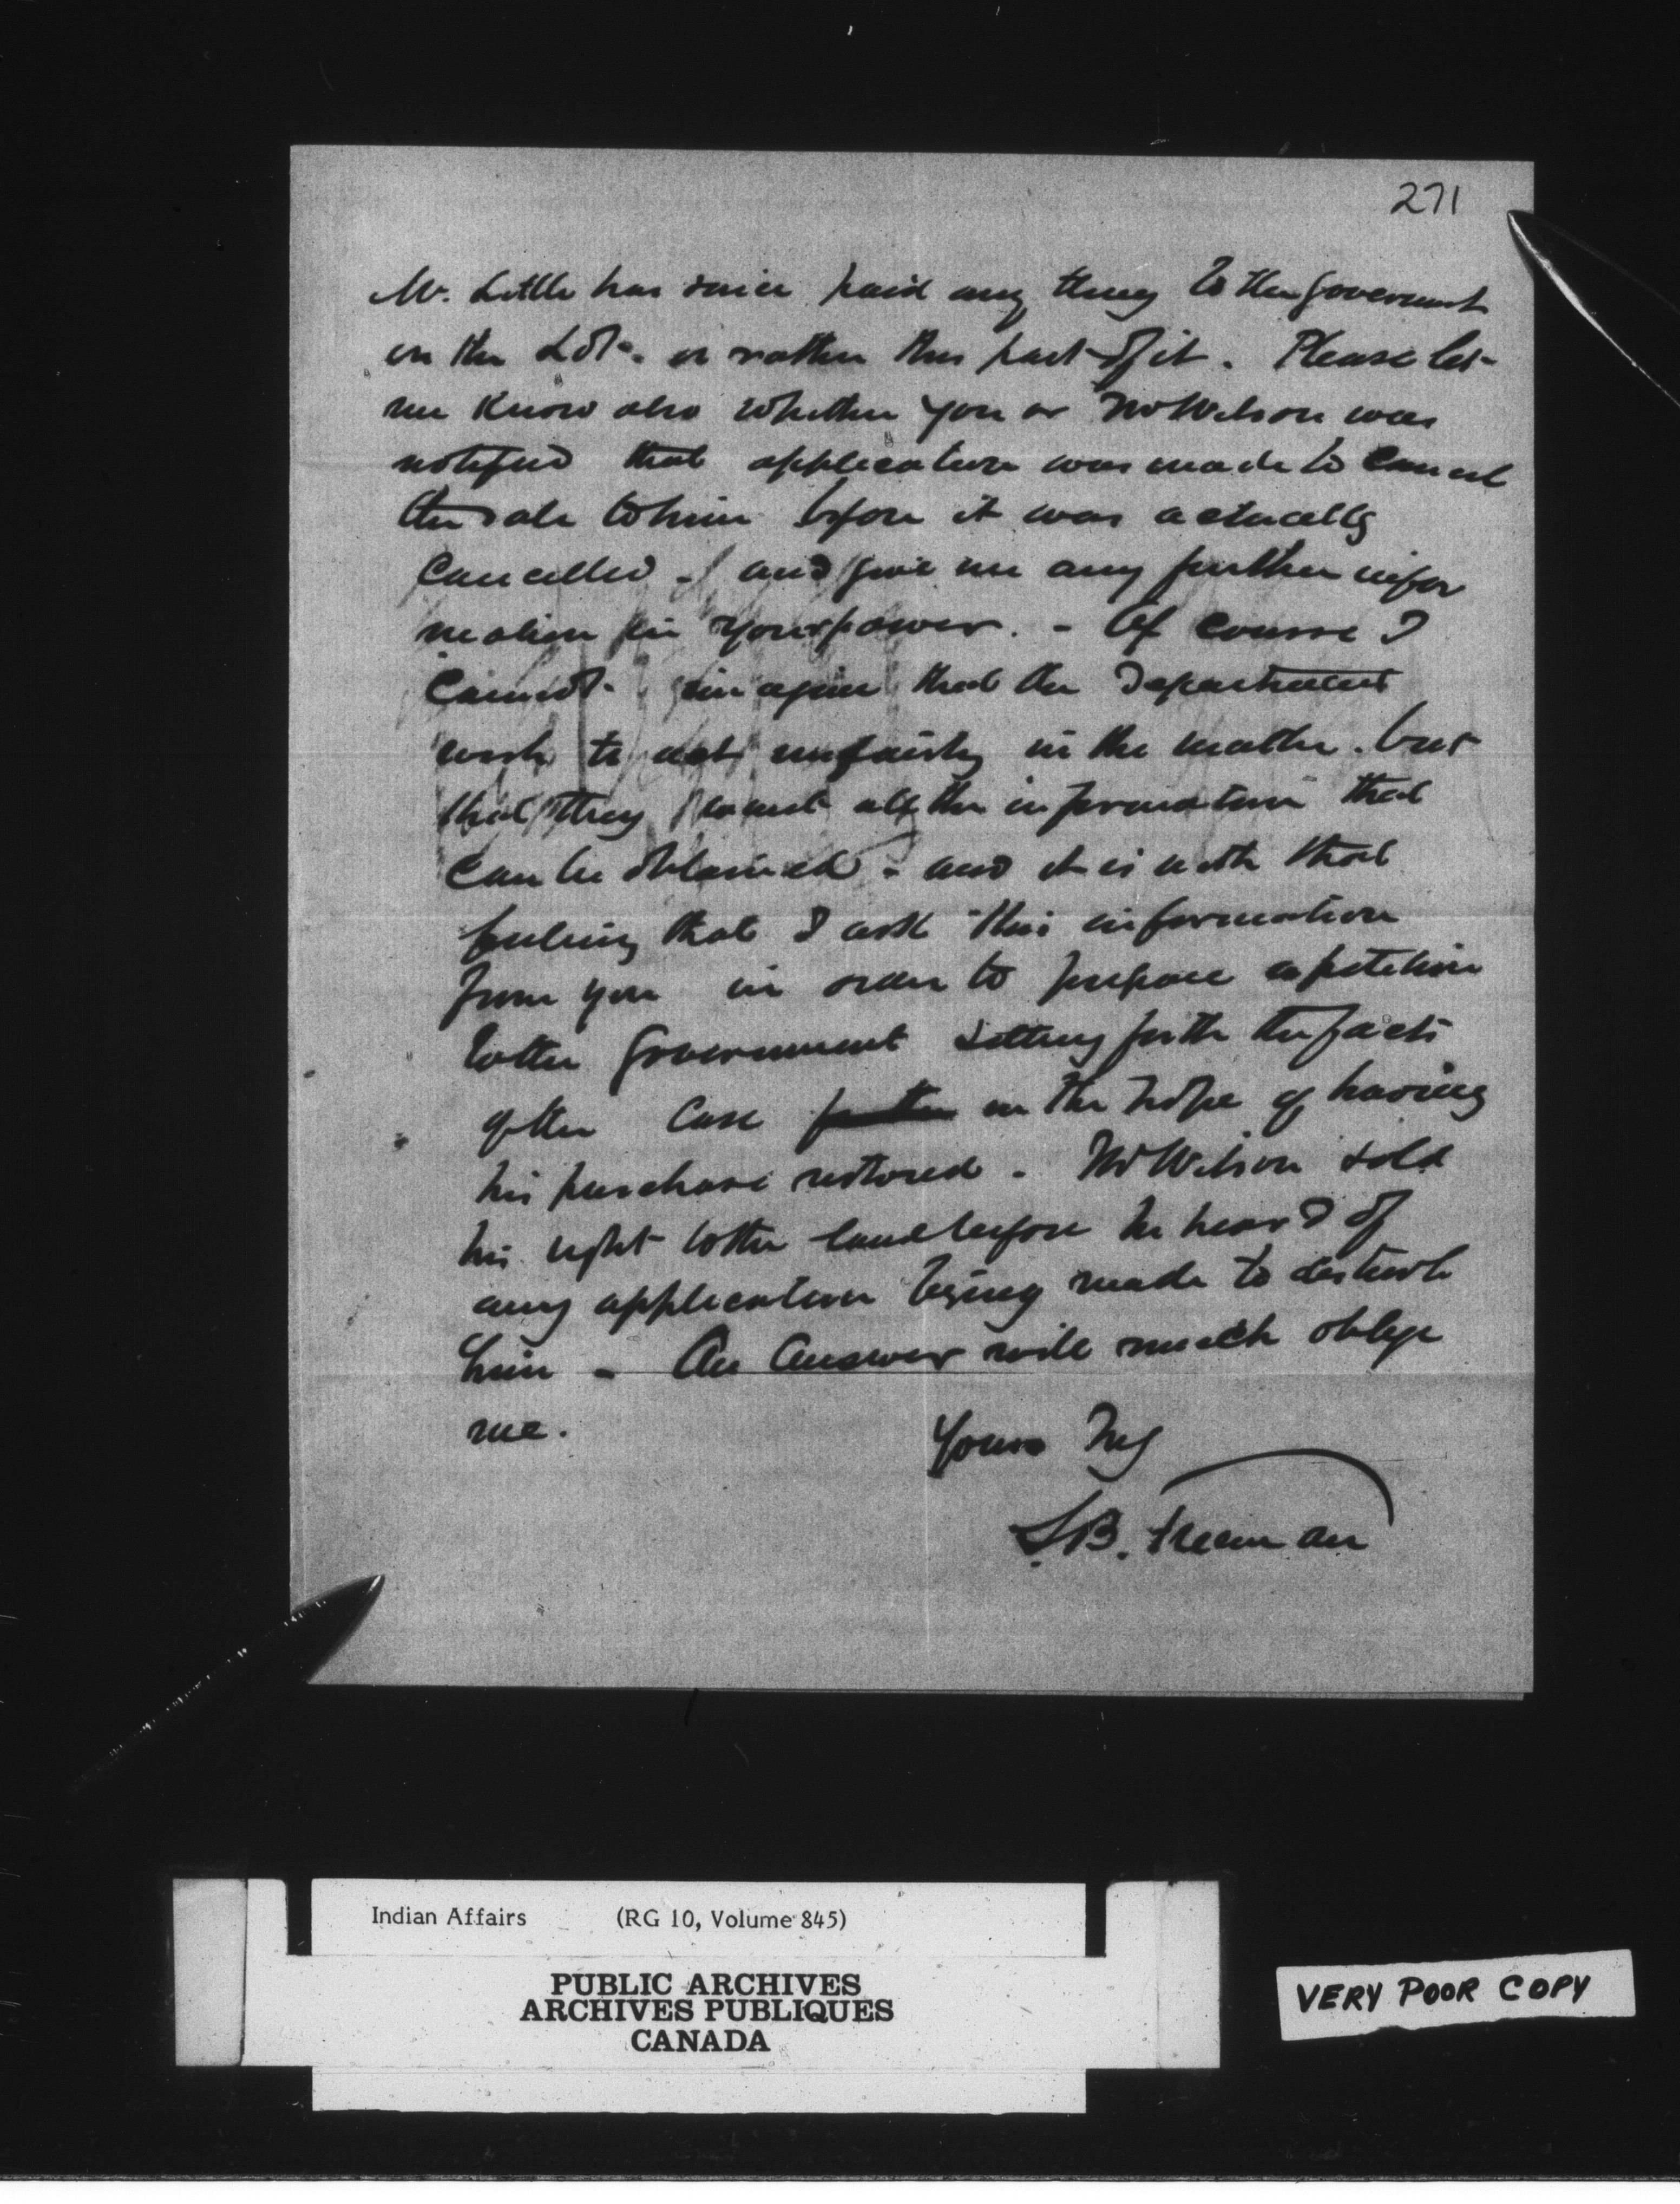 271
Mr. Little has since paid any thing to the Government
on the Lot - or rather this part of it. Please let
me know also whether you or Mr Wilson was
notified that application was made to Cancel
the sale to him before it was actually
Cancelled - and give me any further infor
mation in your power. - Of course I
Cannot imagine that the Department
wish to act unfairly in the matter. but
that they want all the information that
can be obtained - and it is with that
feeling that I ask this information
from you in order to prepare a petition
to the Government setting forth the facts
of the Case in the hope of having
his purchase restored - Mr Wilson sold
his right to the land before he heard of
any application being made to disturb
him - An Answer will much oblige
me.
Yours Try
S.B. Freeman
Indian Affairs (RG 10, Volume 845)
PUBLIC ARCHIVES
ARCHIVES PUBLIQUES
CANADA
VERY POOR COPY